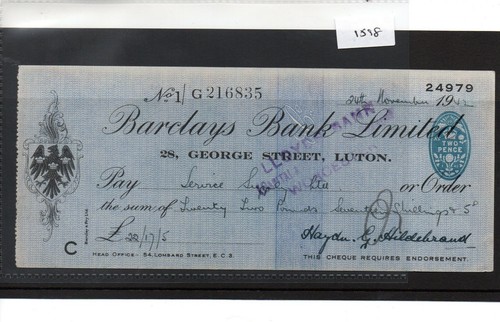 1518
24979
No 1/G 216835
24th November 1942
Barclays Bank Limited
TWO PENCE
28, GEORGE STREET, LUTON.
LLOYDS BANK
Pay Service Ltd or Order
the sum of Twenty Two Pounds Seventeen Shillings & 5d
£22/17/5
Haydn. G. Hildebrand
C
Barclay & Fry Ltd.
HEAD OFFICE - 54, LOMBARD STREET, E.C.3.
THIS CHEQUE REQUIRES ENDORSEMENT.